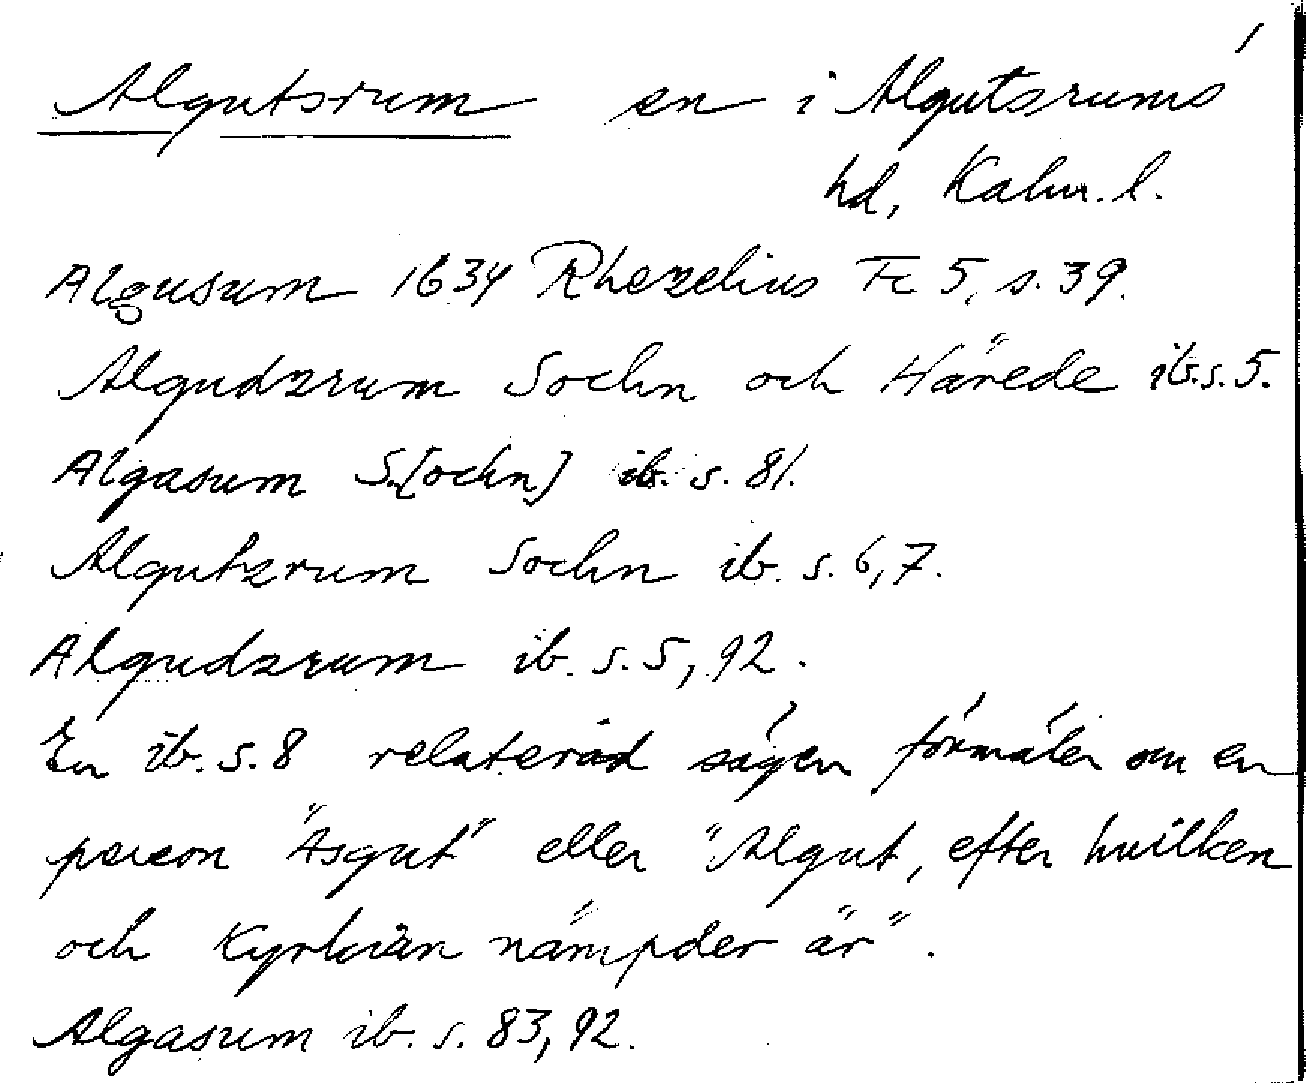 Algutsrum sn i Algutsrums
hd, Kalm. l.
Algusum 1634 Rhezelius Fc 5, s. 39.
Algudzrum Sochn och Härede ib. s. 5.
Algasum S.[ochn] ib. s. 81.
Algutzrum Sochn ib. s. 6, 7.
Algudzrum ib. s. 5, 92.
En ib. s. 8 relaterad sägen förmäler om en
person "Asgut" eller "Algut, efter hvilken
och Kyrkian nämpder är".
Algasum ib. s. 83, 92.